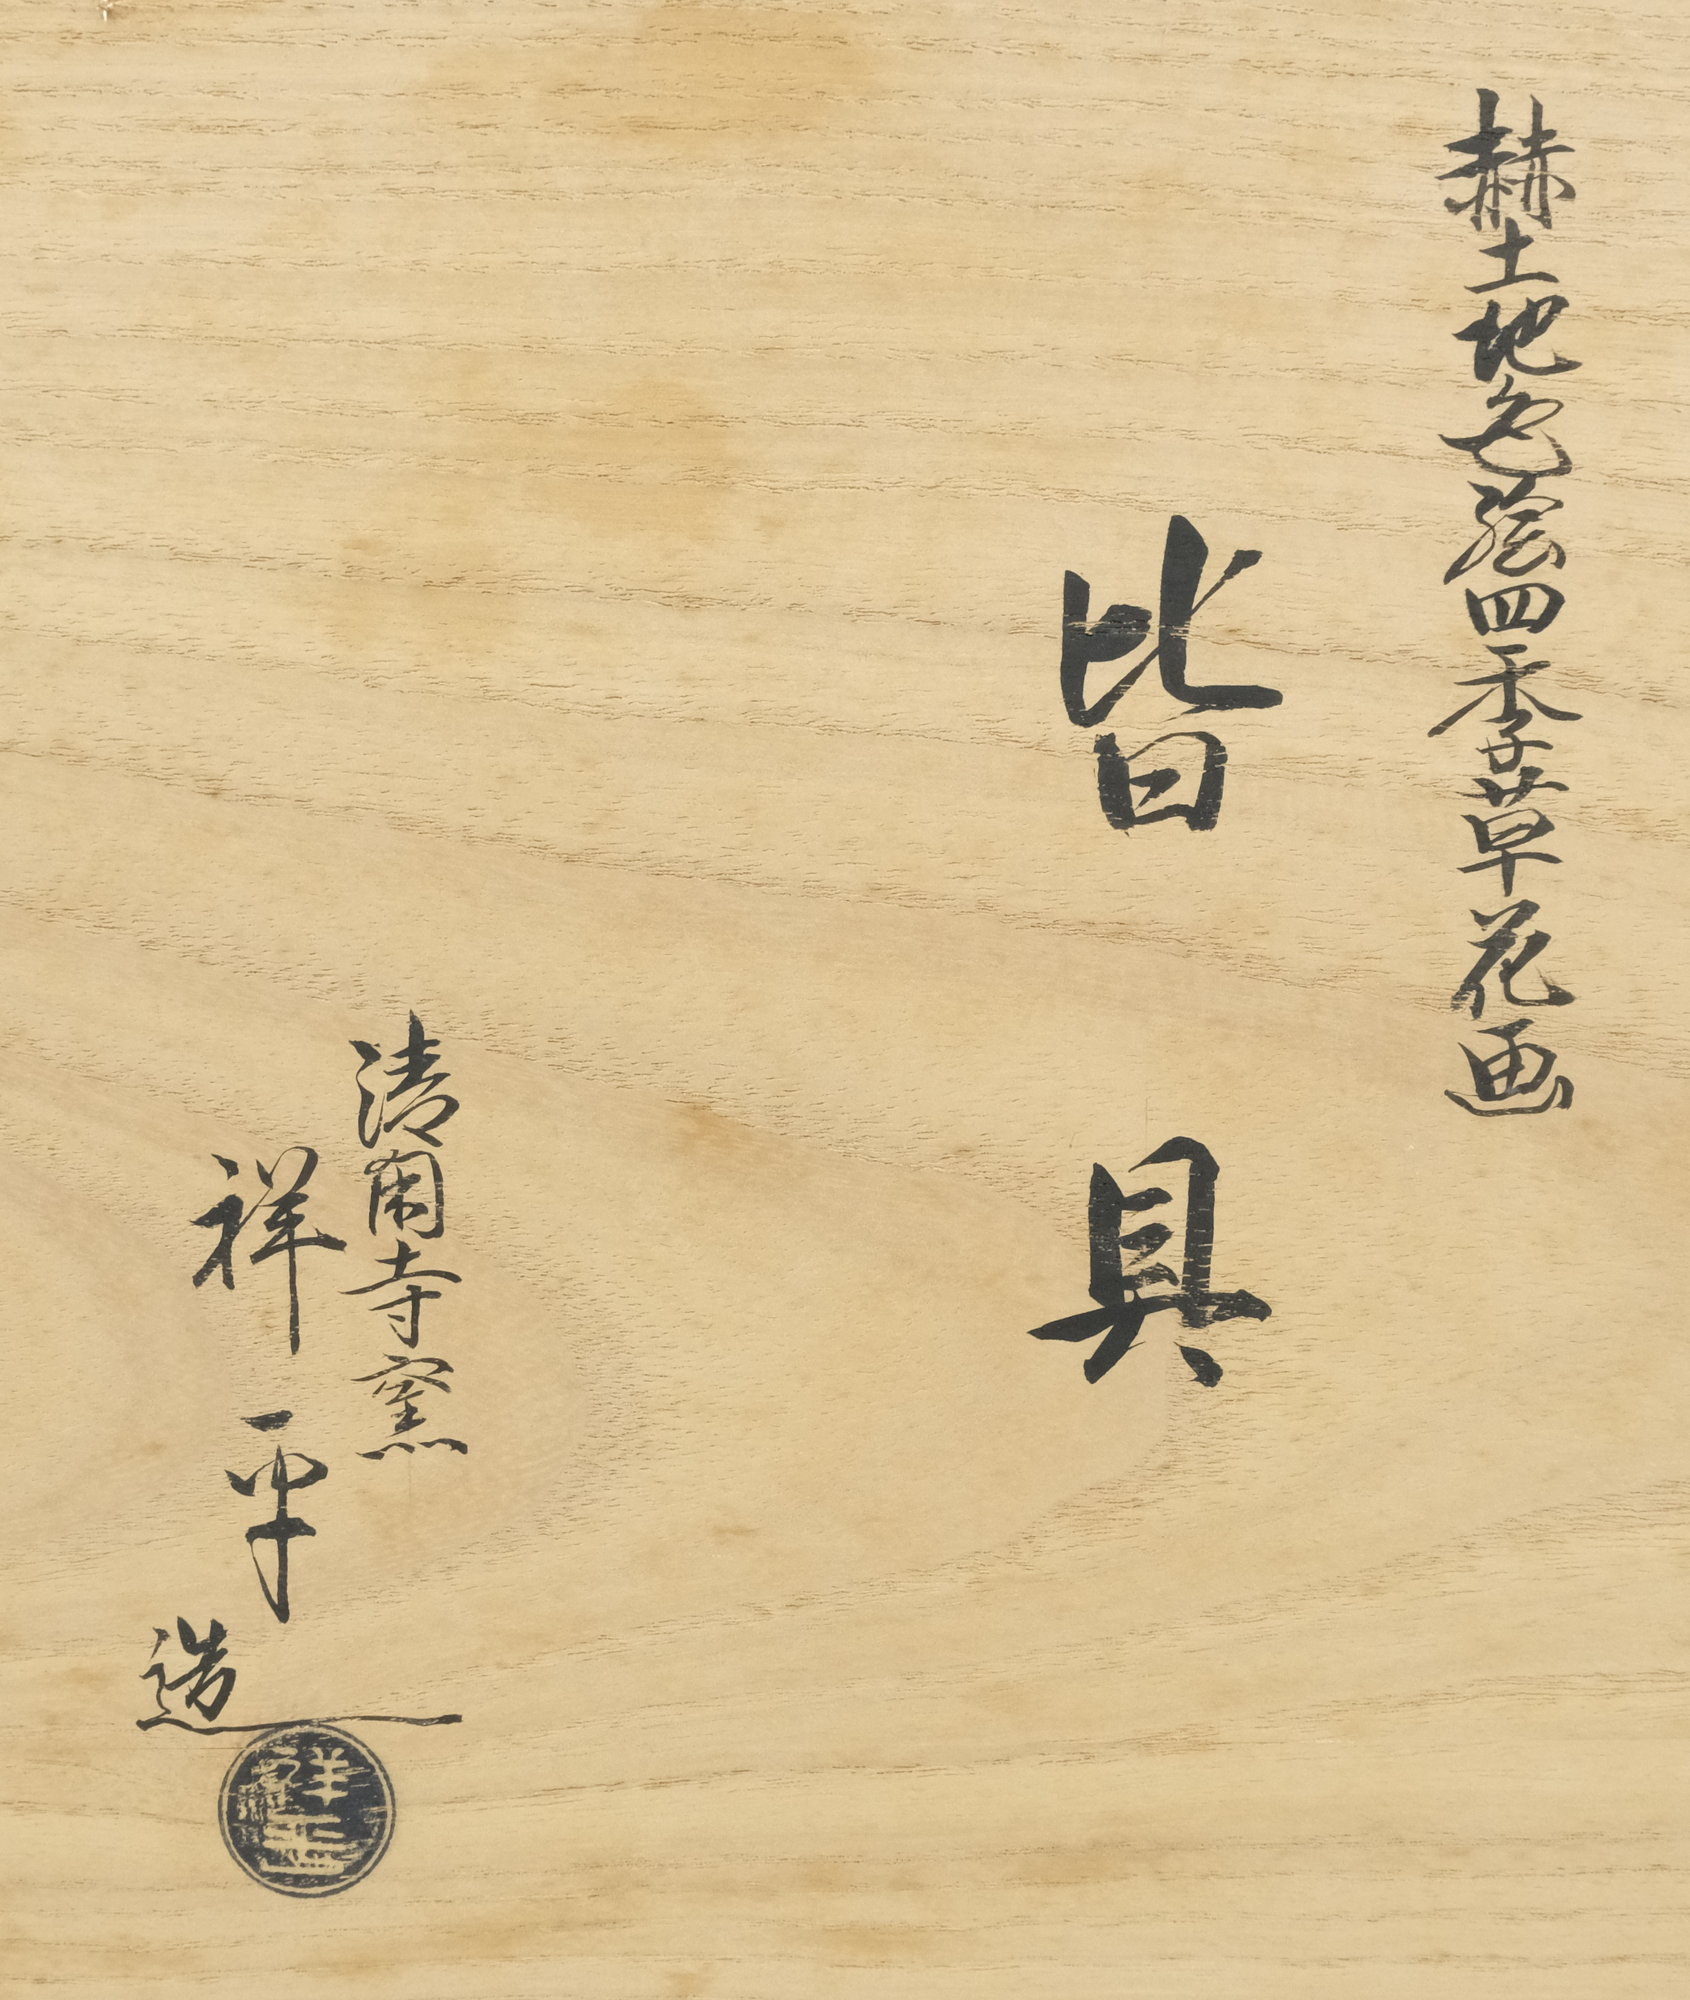 赫土地色絵四季草花画
皆具
清閑寺窯
祥平
造